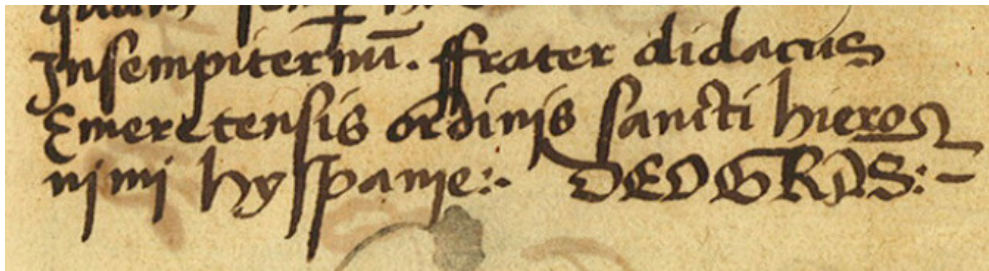 Insempiternū. ffrater didacus
Emeretensis ordinis sancti hieroo
nimi hyspanie:. DEOGRIS:-